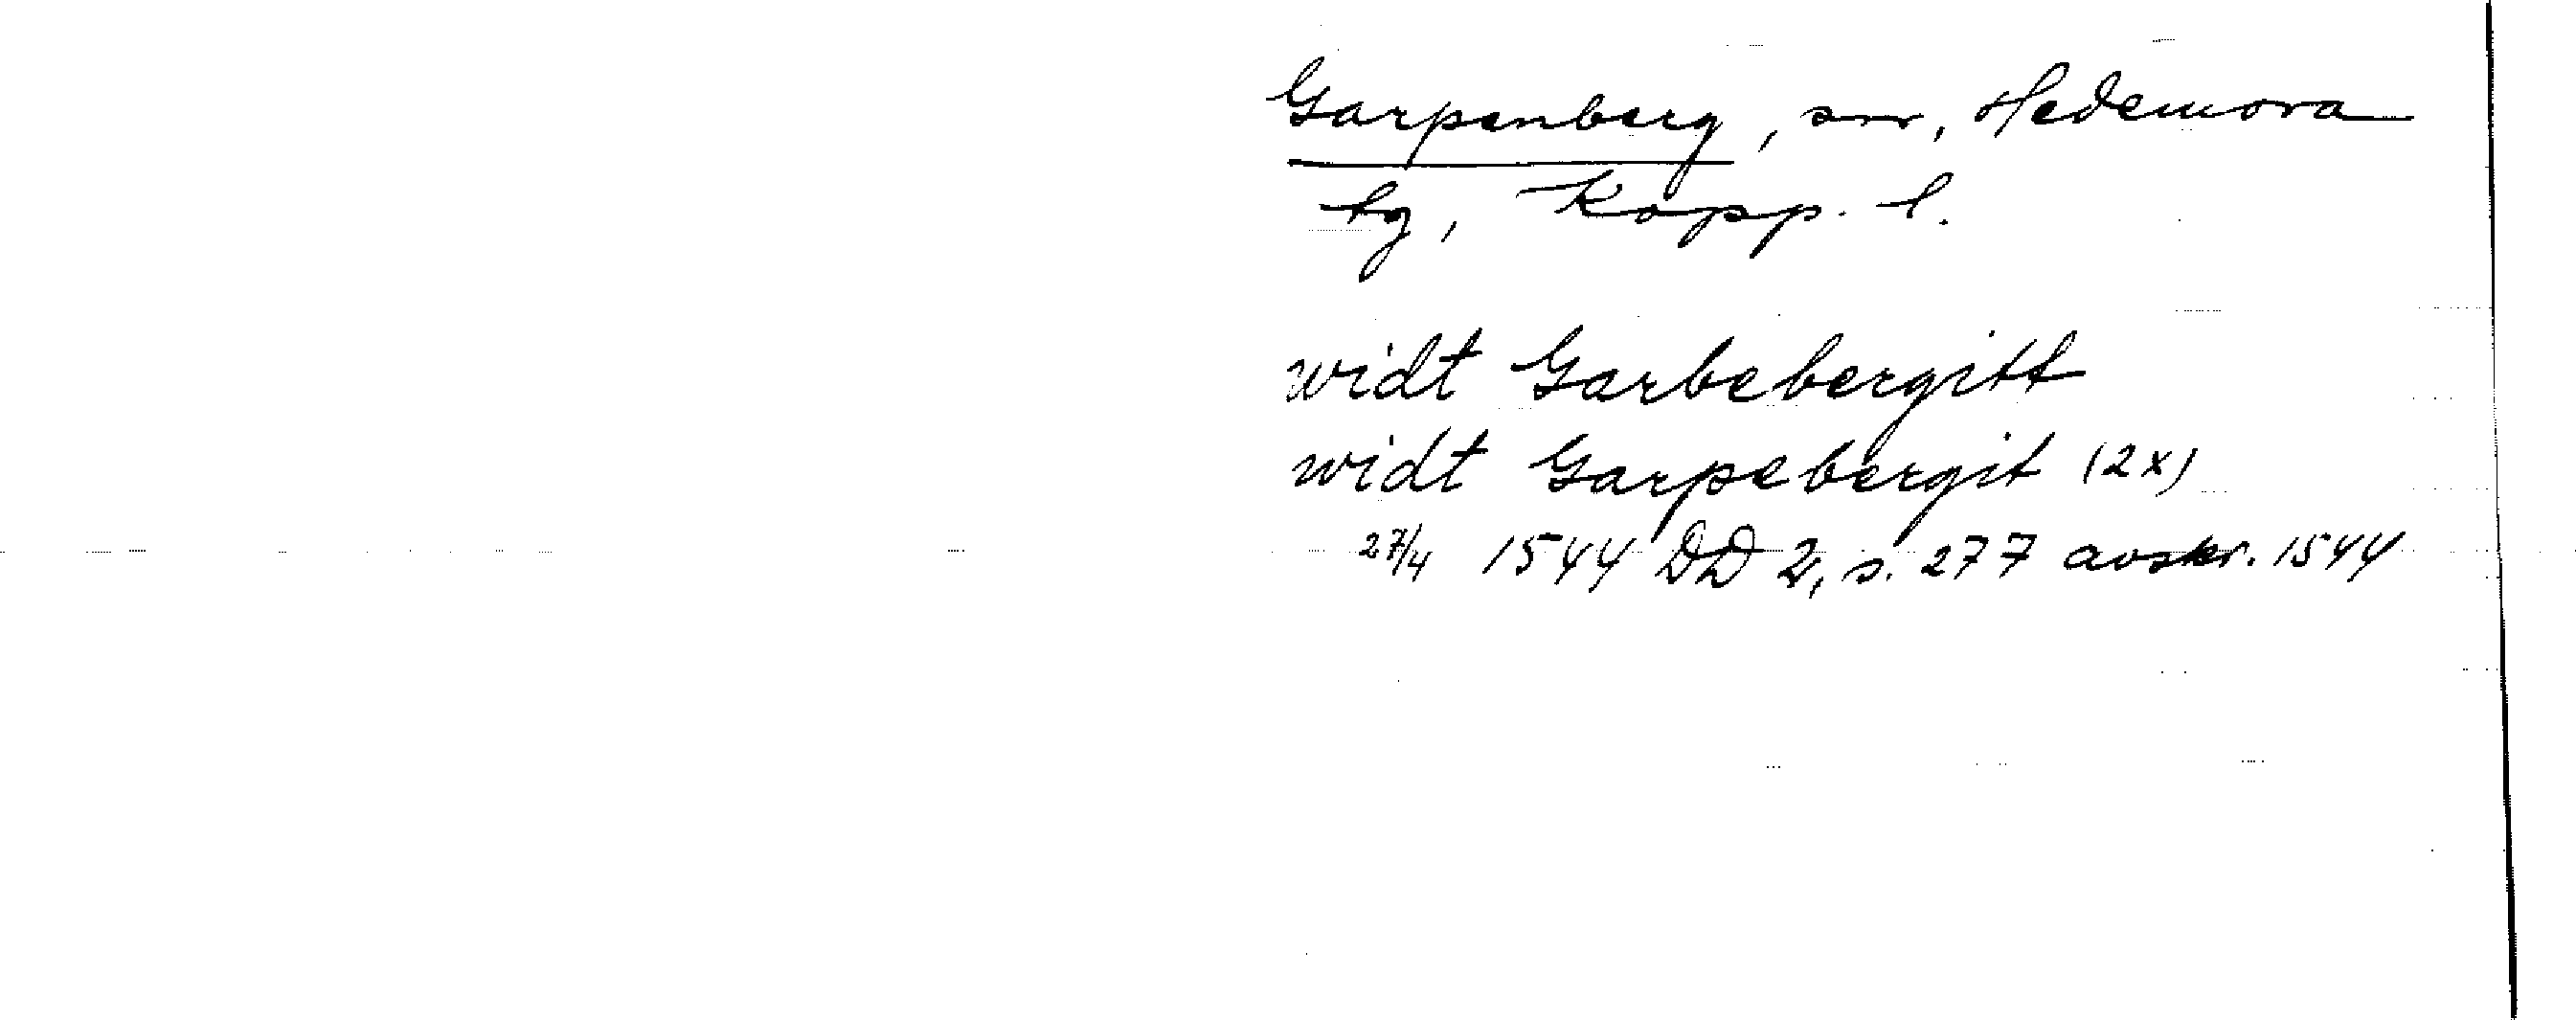 Garpenberg, sn, Hedemora
tg, Kopp. l.
widt Garbebergitt
widt Garpebergit (2x)
27/4 1544 DD 2, s. 277 avskr. 1544